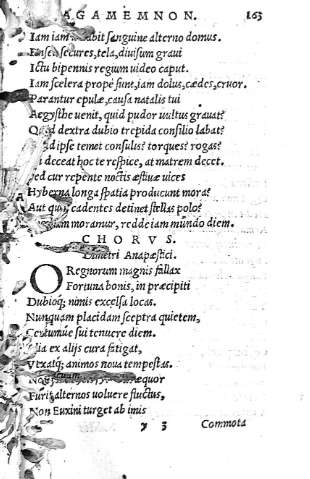 AGAMEMNON. 163
Iam iam bit sanguine alterno domus.
Enses, secures, tela, diuisum graui
Ictu bipennis regium uideo caput.
Iam scelera prope sunt, iam dolus, cædes, cruor.
Parantur epulæ, causa natalis tui
Aegysthe uenit, quid pudor uultus grauat?
dextra dubio trepida consilio labat?
d ipse temet consulis? torques? rogas?
deceat hoc te respice, at matrem decet.
ed cur repente noctis æstiuæ uices
Hyberna longa spatia producunt mora?
Aut quid cadentes detinet stellas polo?
moramur, redde iam mundo diem.
CHORVS.
Dimetri Anapæstici.
O Regnorum magnis fallax
Fortuna bonis, in præcipiti
Dubioq; nimis excelsa locas.
Nunquam placidam sceptra quietem,
Certumue sui tenuere diem.
lia ex alijs cura fatigat,
Vexatq; animos noua tempestas.
Non æquor
Furit alternos uoluere fluctus,
Non Euxini turget ab imis
y 3 Commota